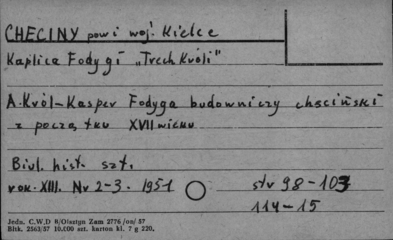 CHĘCINY pow i woj. Kielce
Kaplica Fodygi „Trech Króli"
A. Król-Kasper Fodyga budowniczy chęciński
z począ,tku XVII wieku
Biul. hist. szt.
rok. XIII. Nr 2-3. 1951 str 98-103
114-15
Jedn. C.W.D R/Olsztyn Zam 2776 /on/ 57
Bltk. 2563/57 10.000 szt. karton kl. 7 g 220.